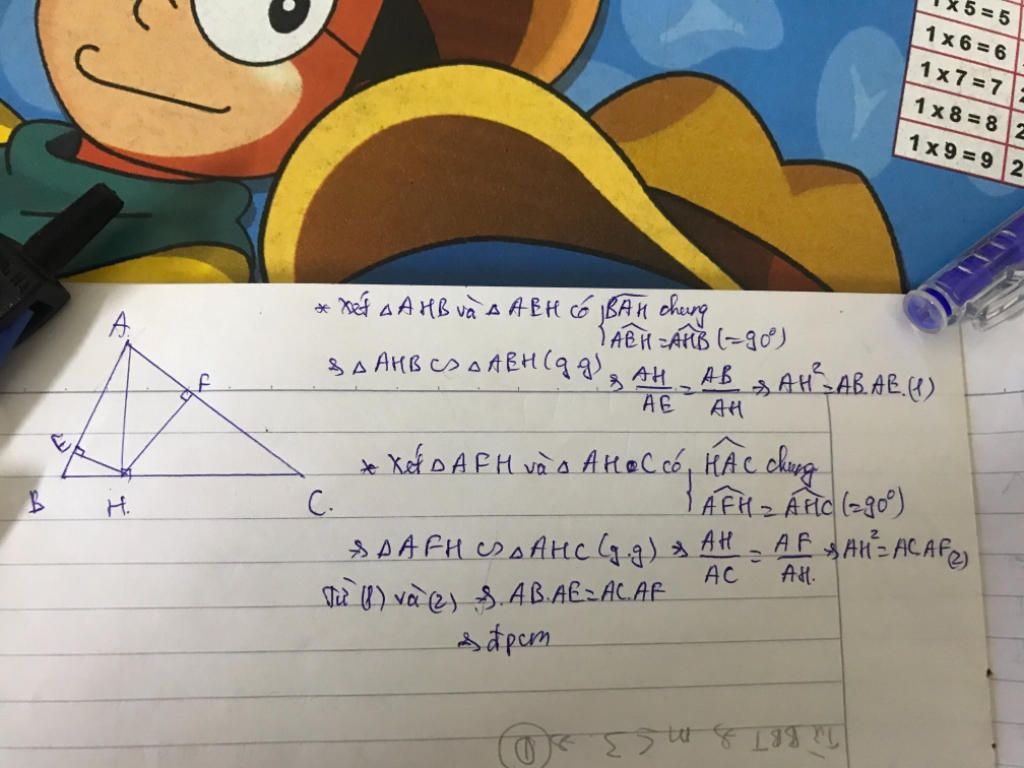 1 x 5 = 5
1 x 6 = 6
1 x 7 = 7 2
1 x 8 = 8 2
1 x 9 = 9 2
* Xét △AHB và △AEH có { BAH chung
AEH = AHB (= 90°)
A.
F
E
B H. C.
⇒ △AHB ∽ △AEH (g.g) ⇒ AH/AE = AB/AH ⇒ AH² = AB.AE. (1)
* Xét △AFH và △AHC có { HAC chung
AFH = AHC (= 90°)
⇒ △AFH ∽ △AHC (g.g) ⇒ AH/AC = AF/AH. ⇒ AH² = AC.AF (2)
Từ (1) và (2) ⇒. AB.AE = AC.AF
⇒ đpcm
Từ BBT ⇒ m ≤ 3 ⇒